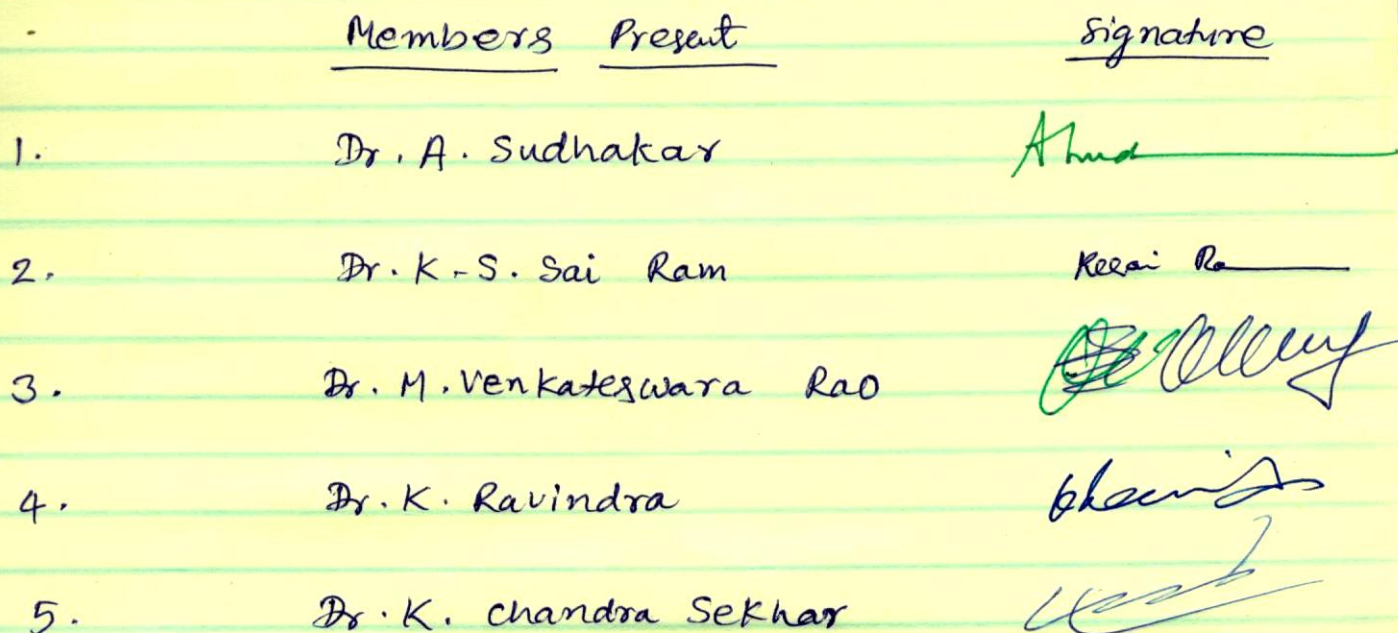 Members Present Signature
1. Dr. A. Sudhakar
2. Dr. K.S. Sai Ram
3. Dr. M. Venkateswara Rao
4. Dr. K. Ravindra
5. Dr. K. Chandra Sekhar